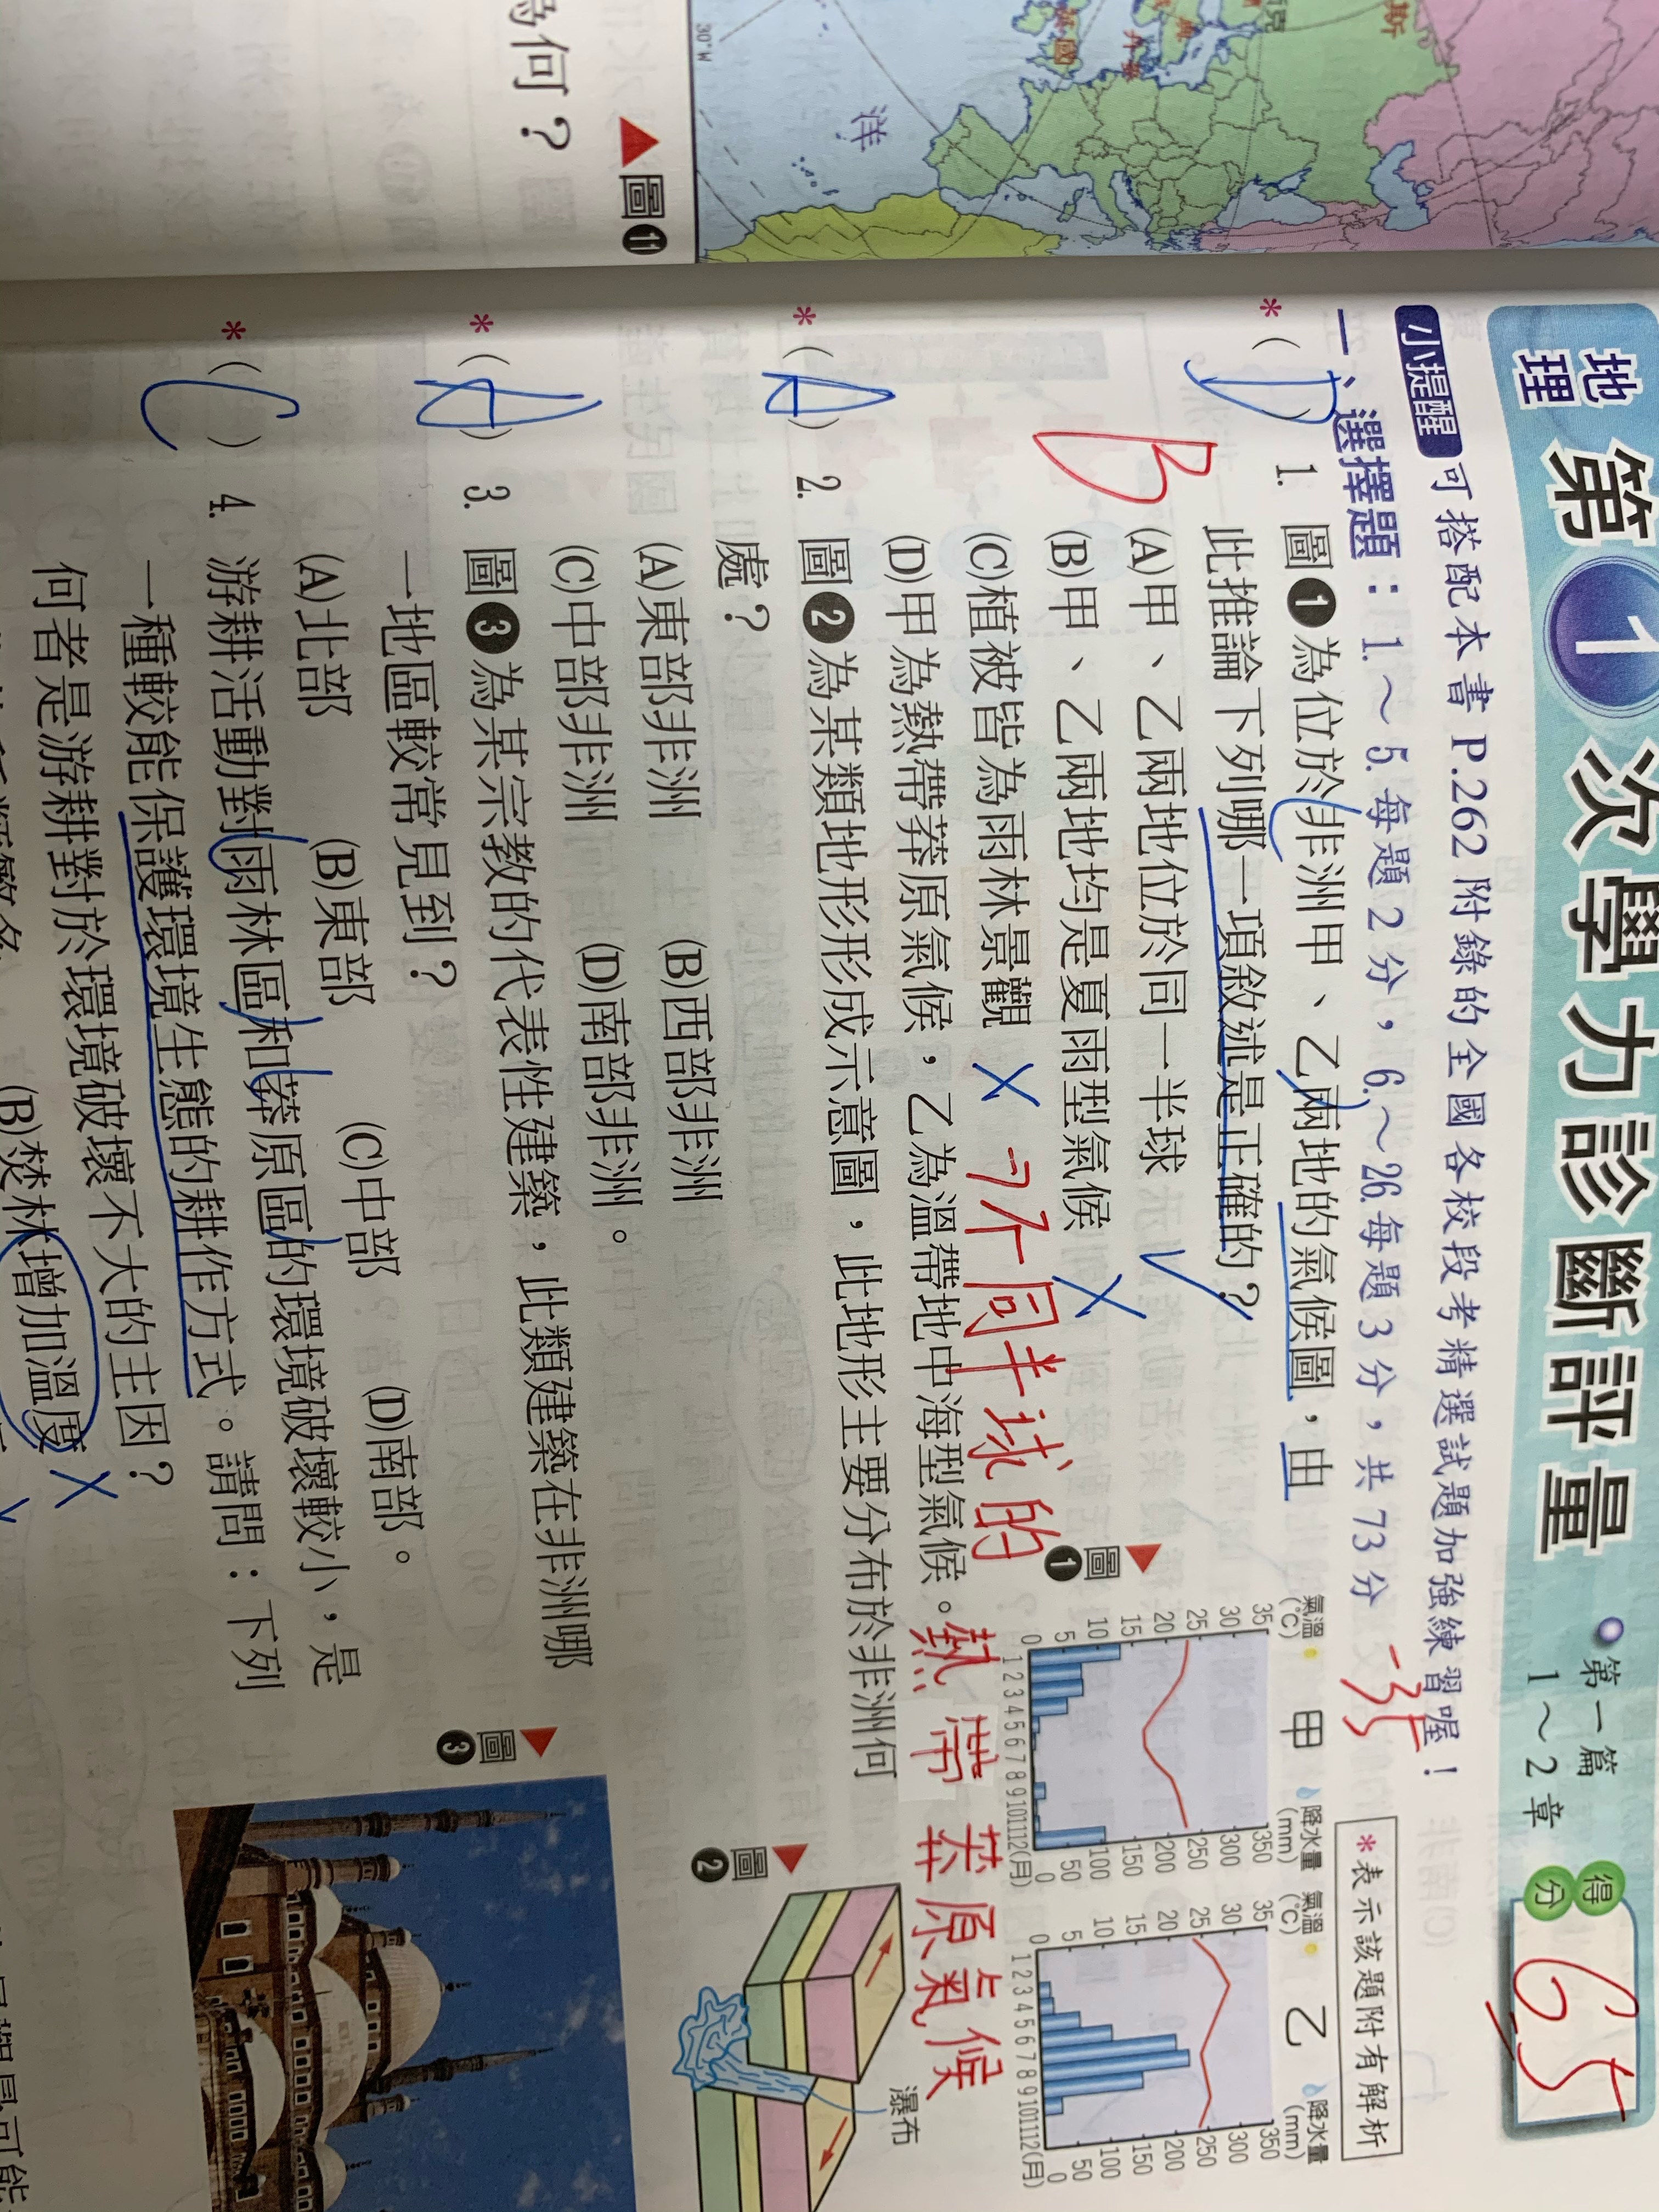 地理 第1次學力診斷評量
第一篇
1～2章
得分 65
小提醒 可搭配本書 P.262 附錄的全國各校段考精選試題加強練習喔！
一、選擇題：1.～5.每題2分，6.～26.每題3分，共73分 -35
*表示該題附有解析
*（D）1. 圖❶為位於非洲甲、乙兩地的氣候圖，由
此推論下列哪一項敘述是正確的？
B
(A)甲、乙兩地位於同一半球
(B)甲、乙兩地均是夏雨型氣候
(C)植被皆為雨林景觀
(D)甲為熱帶莽原氣候，乙為溫帶地中海型氣候。
→不同半球的
熱帶莽原氣候
▲圖❶
氣溫(℃) 甲 降水量(mm)
35 350
30 300
25 250
20 200
15 150
10 100
5 50
0 0
1 2 3 4 5 6 7 8 9 10 11 12(月)
氣溫(℃) 乙 降水量(mm)
35 350
30 300
25 250
20 200
15 150
10 100
5 50
0 0
1 2 3 4 5 6 7 8 9 10 11 12(月)
*（A）2. 圖❷為某類地形形成示意圖，此地形主要分布於非洲何
處？
(A)東部非洲 (B)西部非洲
(C)中部非洲 (D)南部非洲。
▲圖❷
瀑布
*（A）3. 圖❸為某宗教的代表性建築，此類建築在非洲哪
一地區較常見到？
(A)北部 (B)東部 (C)中部 (D)南部。
▲圖❸
*（C）4. 游耕活動對雨林區和莽原區的環境破壞較小，是
一種較能保護環境生態的耕作方式。請問：下列
何者是游耕對於環境破壞不大的主因？
(B)焚林增加溫度
為何？
▲圖⓫
30°W
洋
國
丹麥
典
克
斯